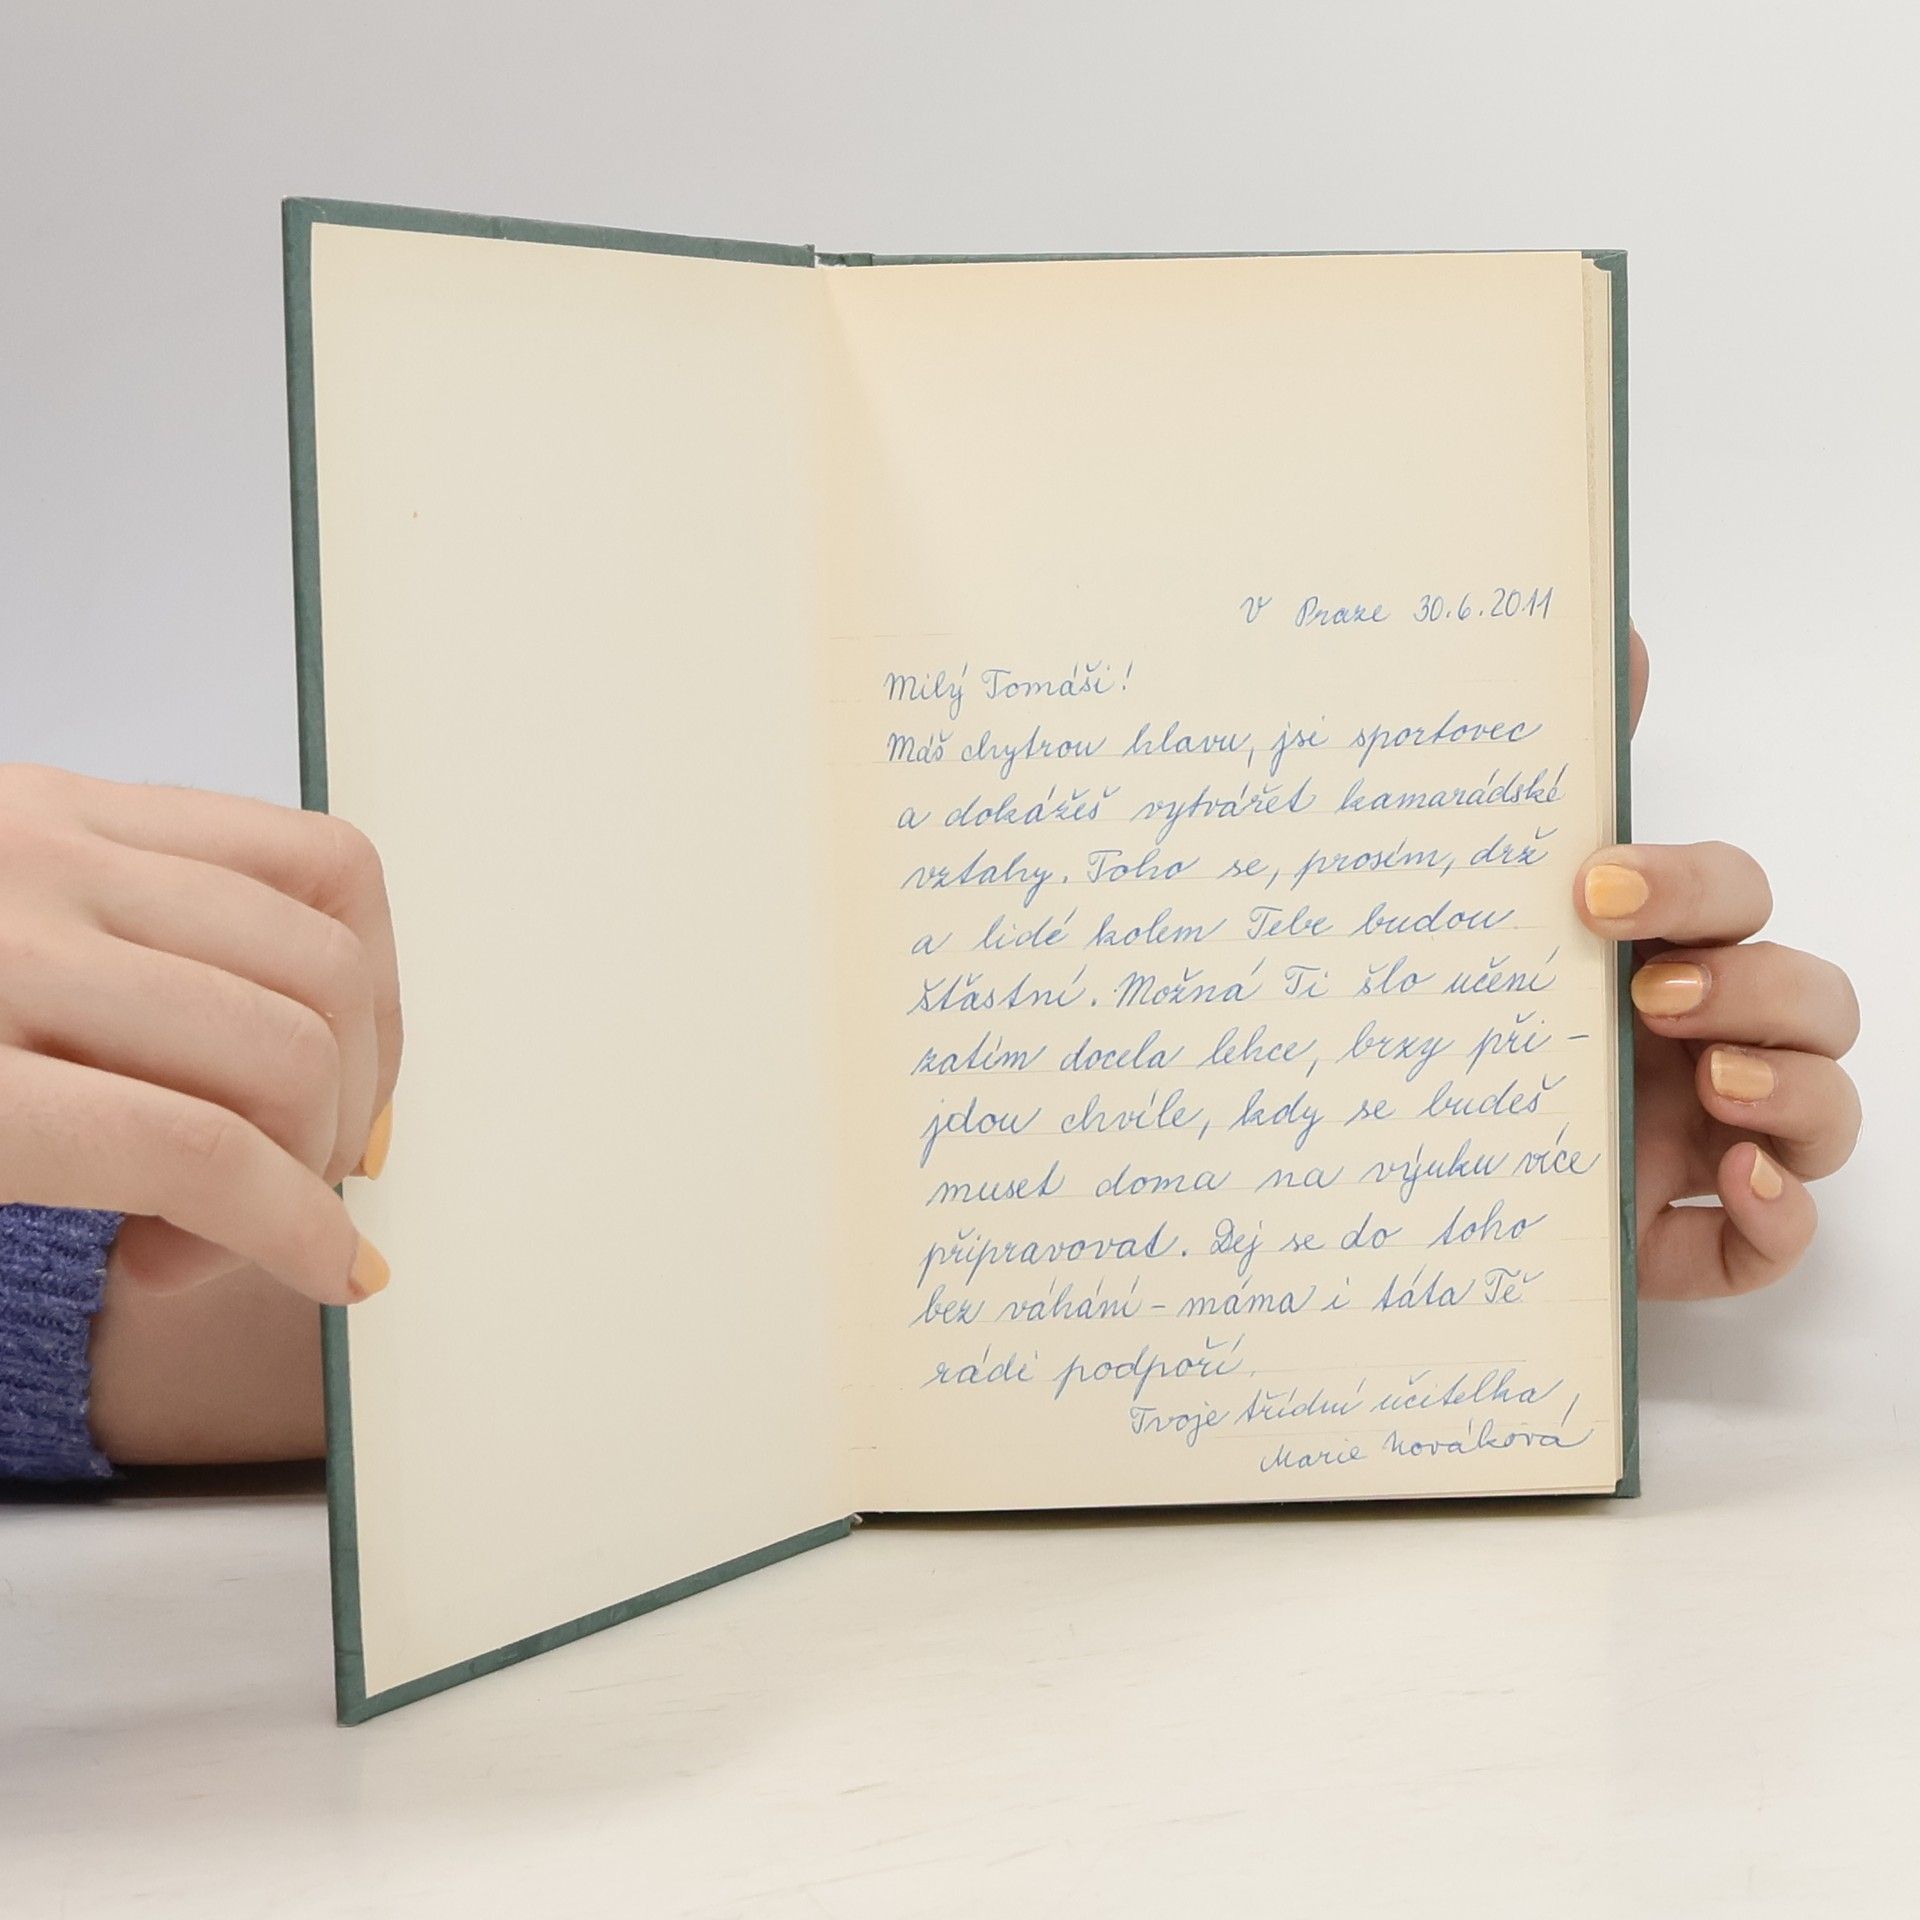 V Praze 30.6.2011
Milý Tomáši!
Máš chytrou hlavu, jsi sportovec
a dokážeš vytvářet kamarádské
vztahy. Toho se, prosím, drž
a lidé kolem Tebe budou
šťastní. Možná Ti šlo učení
zatím docela lehce, brzy při-
jdou chvíle, kdy se budeš
muset doma na výuku více
připravovat. Dej se do toho
bez váhání - máma i táta Tě
rádi podpoří.
Tvoje třídní učitelka,
Marie Nováková